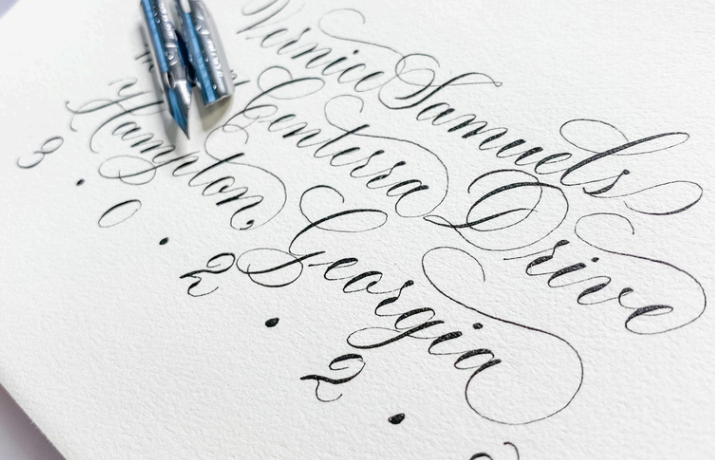 Vernice Samuels
Centerra Drive
Hampton, Georgia
3 · 0 · 2 · 2 ·